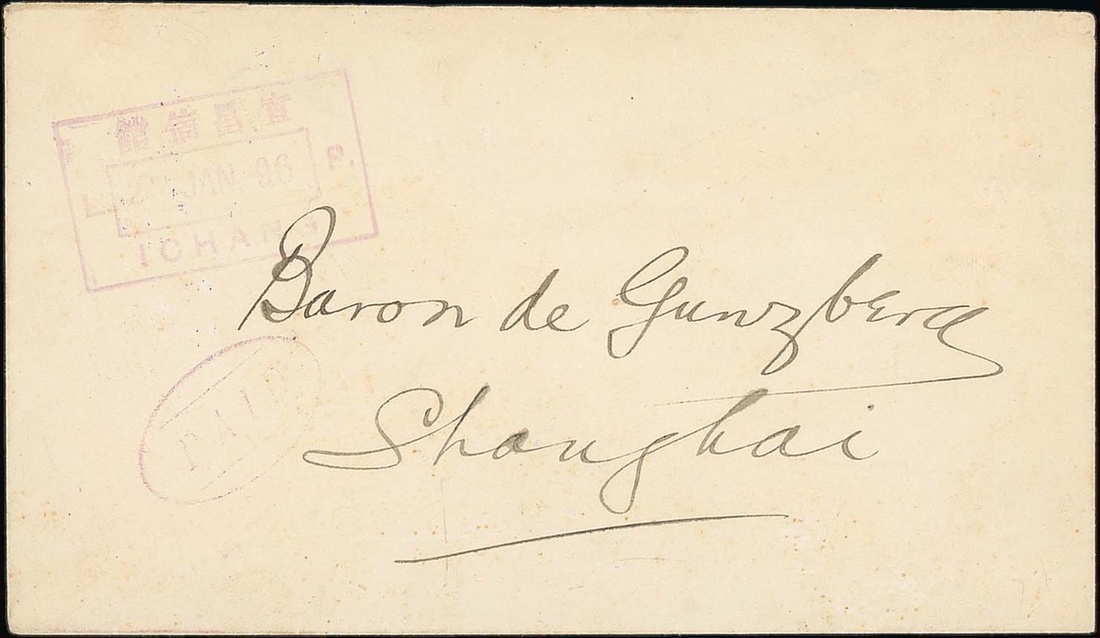 宜昌信館
L. JAN. 96 P.
ICHANG
Baron de Gunzberg
PAID
Shanghai